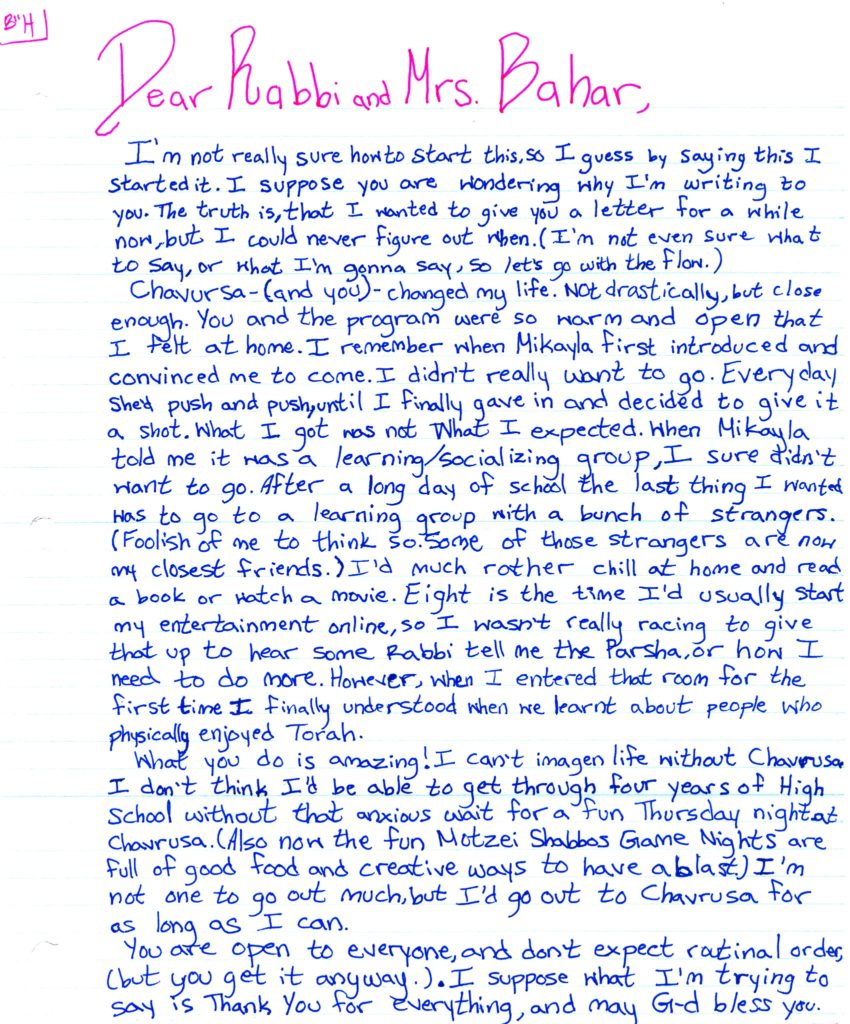 B"H
Dear Rabbi and Mrs. Bahar,
I'm not really sure how to start this, so I guess by saying this I
started it. I suppose you are wondering why I'm writing to
you. The truth is, that I wanted to give you a letter for a while
now, but I could never figure out when. (I'm not even sure what
to say, or what I'm gonna say, so let's go with the flow.)
Chavursa-(and you)-changed my life. Not drastically, but close
enough. You and the program were so warm and open that
I felt at home. I remember when Mikayla first introduced and
convinced me to come. I didn't really want to go. Everyday
she'd push and push, until I finally gave in and decided to give it
a shot. What I got was not what I expected. When Mikayla
told me it was a learning/socializing group, I sure didn't
want to go. After a long day of school the last thing I wanted
was to go to a learning group with a bunch of strangers.
(Foolish of me to think so. Some of those strangers are now
my closest friends.) I'd much rother chill at home and read
a book or watch a movie. Eight is the time I'd usually start
my entertainment online, so I wasn't really racing to give
that up to hear some Rabbi tell me the Parsha, or how I
need to do more. However, when I entered that room for the
first time I finally understood when we learnt about people who
physically enjoyed Torah.
What you do is amazing! I can't imagen life without Chavrusa
I don't think I'd be able to get through four years of High
School without that anxious wait for a fun Thursday night at
Chavrusa. (Also now the fun Motzei Shabbos Game Nights are
full of good food and creative ways to have a blast.) I'm
not one to go out much, but I'd go out to Chavrusa for
as long as I can.
You are open to everyone, and don't expect ratinal order,
(but you get it anyway.). I suppose what I'm trying to
say is Thank You for everything, and may G-d bless you.